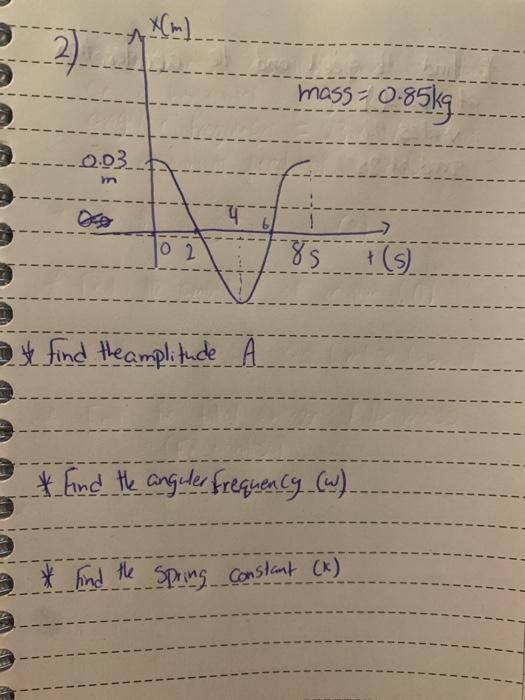 2)
x(m)
mass = 0.85kg
0.03
m
4
6
0 2
8s
t(s)
* find the amplitude A
* find the anguler frequency (w)
* find the spring constant (k)